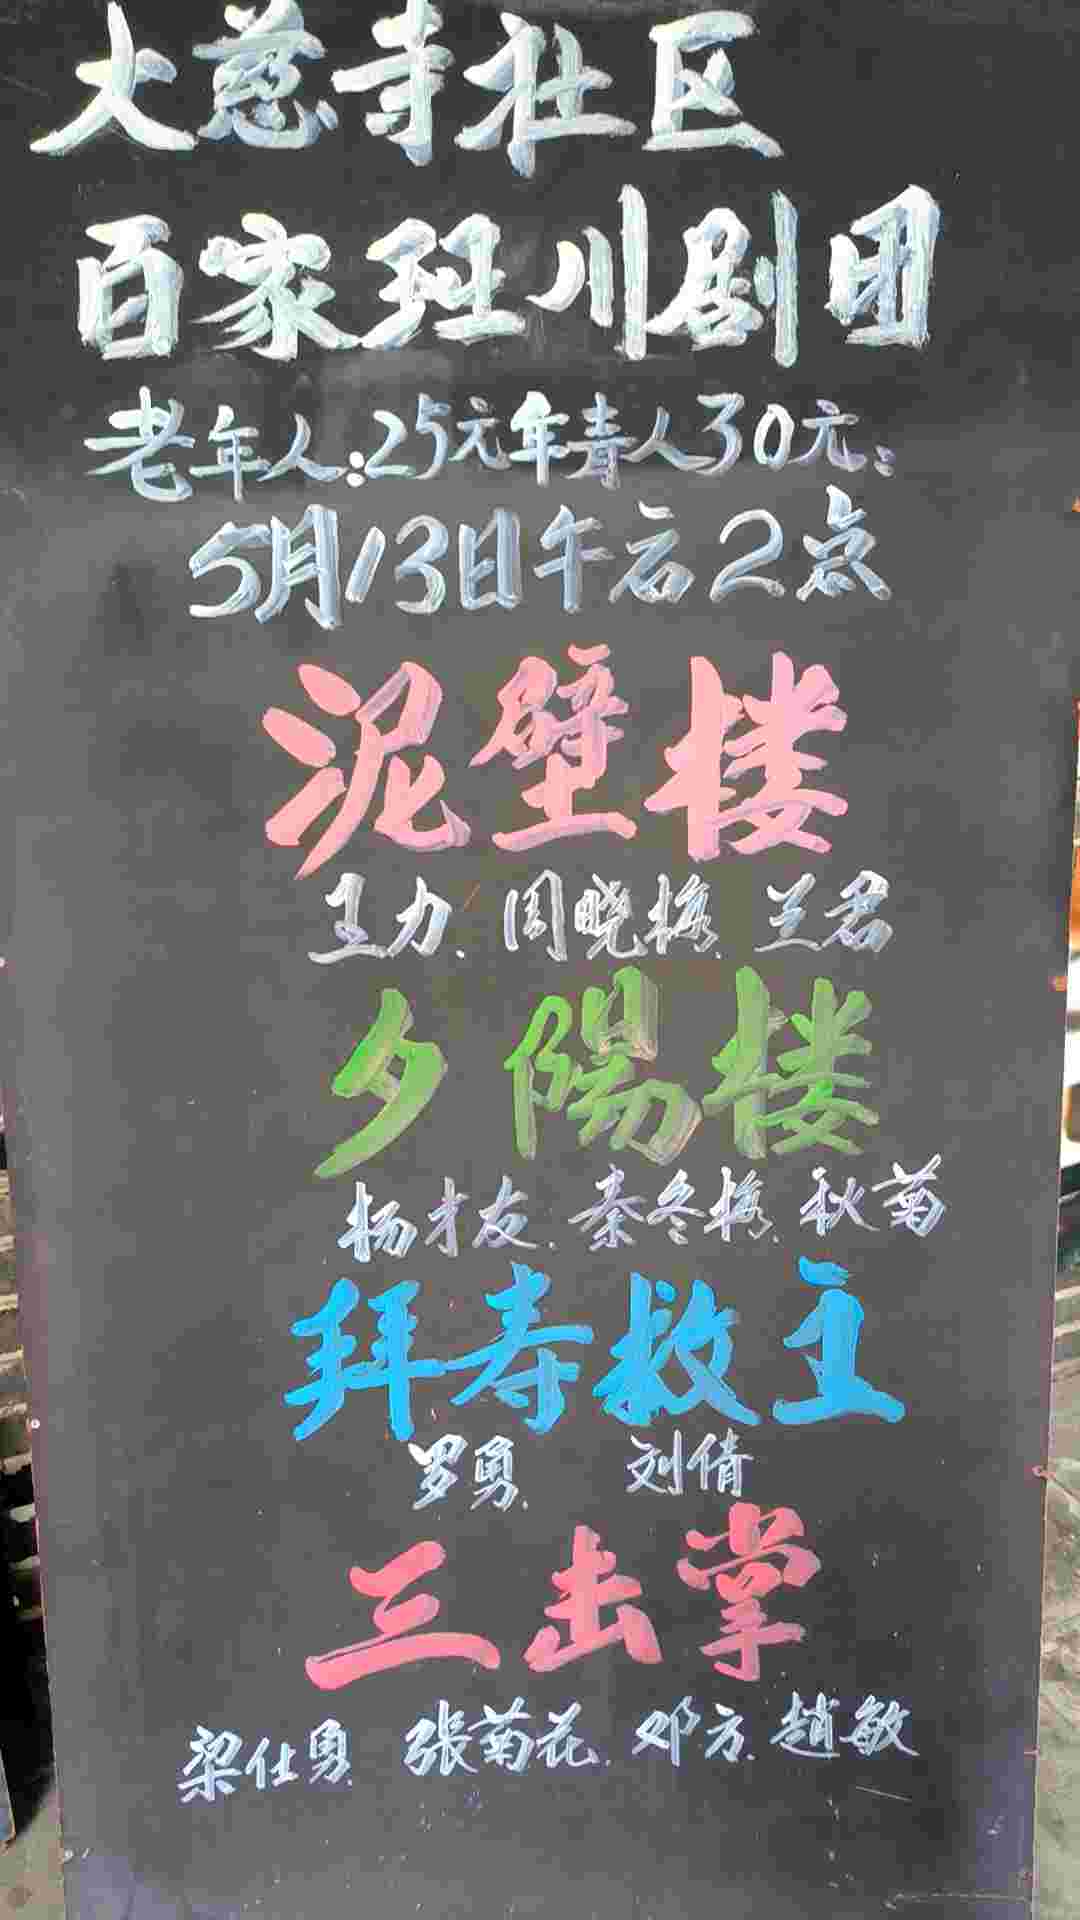 大慈寺社区
百家班川剧团
老年人:25元年青人30元:
5月13日午后2点
泥壁楼
王力、周晓梅、兰君
夕陽楼
杨才友、秦冬梅、秋菊
拜寿救主
罗勇、刘倩
三击掌
梁仕勇、张菊花、邓方、趙敏